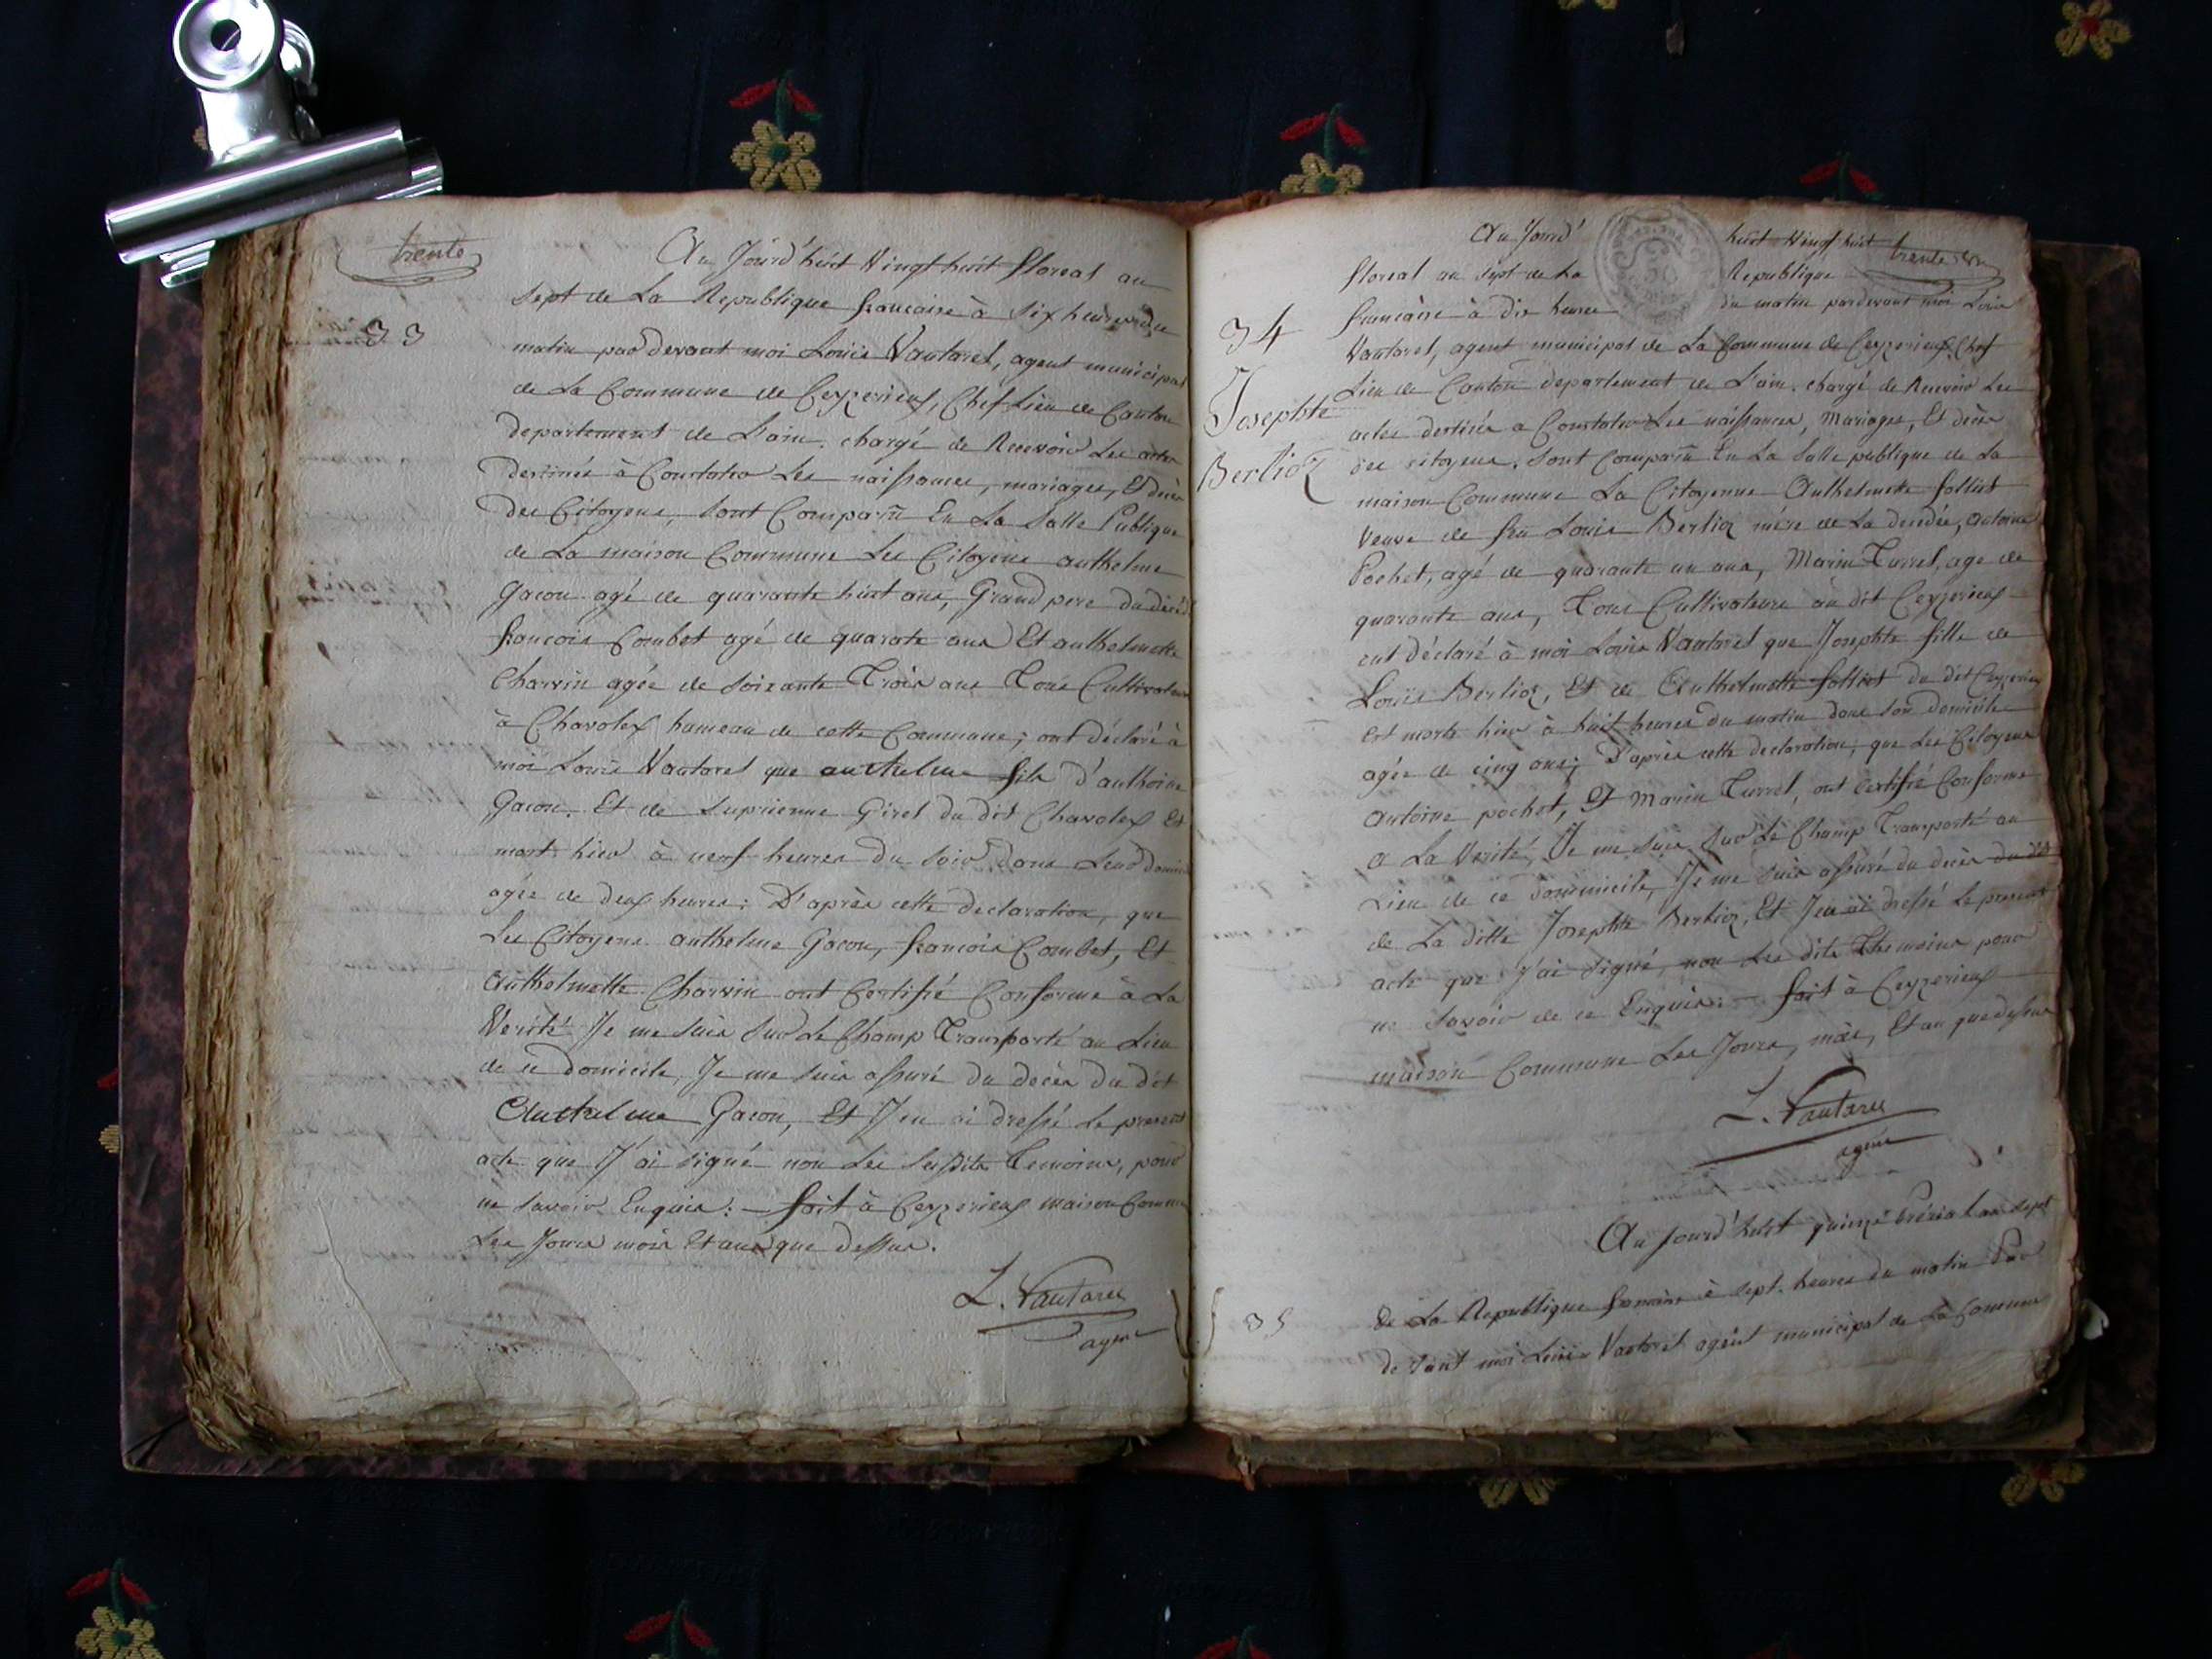 trente
33
Au Jourd'huit Vingt huit floreal an
sept de La Republique francaise à six heures du
matin par devant moi Louis Vautaret, agent municipal
de La Commune de Ceyzerieux, Chef Lieu de Canton
departement de L'ain. chargé de Recevoir Les actes
destinés à Constater Les naissances, mariages, Et decès
des Citoyens, sont Comparû En La Salle Publique
de La maison Commune Les Citoyens anthelme
Gacon agé de quarante huit ans, Grand pere du
francois Combet agé de quarate ans Et anthelmette
Charvin agée de soixante Trois ans Tous Cultivateurs
à Chavolex hameau de cette Commune; ont déclaré à
moi Louis Vautaret que anthelme fils d'anthoine
Gacon. Et de Giret du dit Chavolex Et
mort hier à neuf heures du soir dans Leur
agée de deux heures: D'après cette declaration, que
Les Citoyens anthelme Gacon, francois Combet, Et
Anthelmette Charvin ont Certifié Conforme à La
Verité Je me suis sur Le Champ Transporté au Lieu
de ce Domicile, Je me suis assuré du decès du dit
Anthelme Gacon, Et J'en ai dressé Le present
acte que J'ai signé non Les susdits Temoins, pour
ne savoir Enquis: - fait à Ceyzerieux maison
Les Jours mois Et an que dessus.
L. Vautaret
agent
trente un
34
Josephte
Berlioz
Au Jourd' huit Vingt huit
floreal an sept de La Republique
francaise à dix heures du matin pardevant moi Louis
Vautaret, agent municipal de La Commune de Ceyzerieux Chef
Lieu de Canton departement de L'ain. chargé de Recevoir Les
actes destinés a Constater Les naissances, Mariages, Et decès
des citoyens, sont Comparû En La Salle publique de La
maison Commune La Citoyenne Anthelmette folliet
Veuve de feu Louis Berlioz mère de La decedée, antoine
Pochet, agé de quarante un ans, Marin Turrel, age de
quarante ans, Tous Cultivateurs au dit Ceyzerieux
ont déclaré à moi Louis Vautaret que Josephte fille de
Louis Berlioz, Et de Anthelmette folliet du dit Ceyzerieux
est morte hier à huit heures du matin dans son domicile
agée de cinq ans; D'après cette declaration, que Les Citoyens
antoine pochet, Et Marin Turrel, ont certifié Conforme
a La Verité, Je me suis sur Le Champ Transporté au
Lieu de ce dommicile, Je me suis assuré du decès du dit
de La ditte Josephte Berlioz, Et J'en ai dressé Le present
acte que J'ai signé, non Les dits Themoins pour
ne savoir de ce Enquis: - fait à Ceyzerieux
maison Commune Les Jours, mois, Et an que dessus
L. Vautaret
agent
35
Au Jourd'huit quinze Prerial an sept
de La Republique francaise à sept heures du matin Par
devant moi Louis Vautaret agent municipal de La Commune